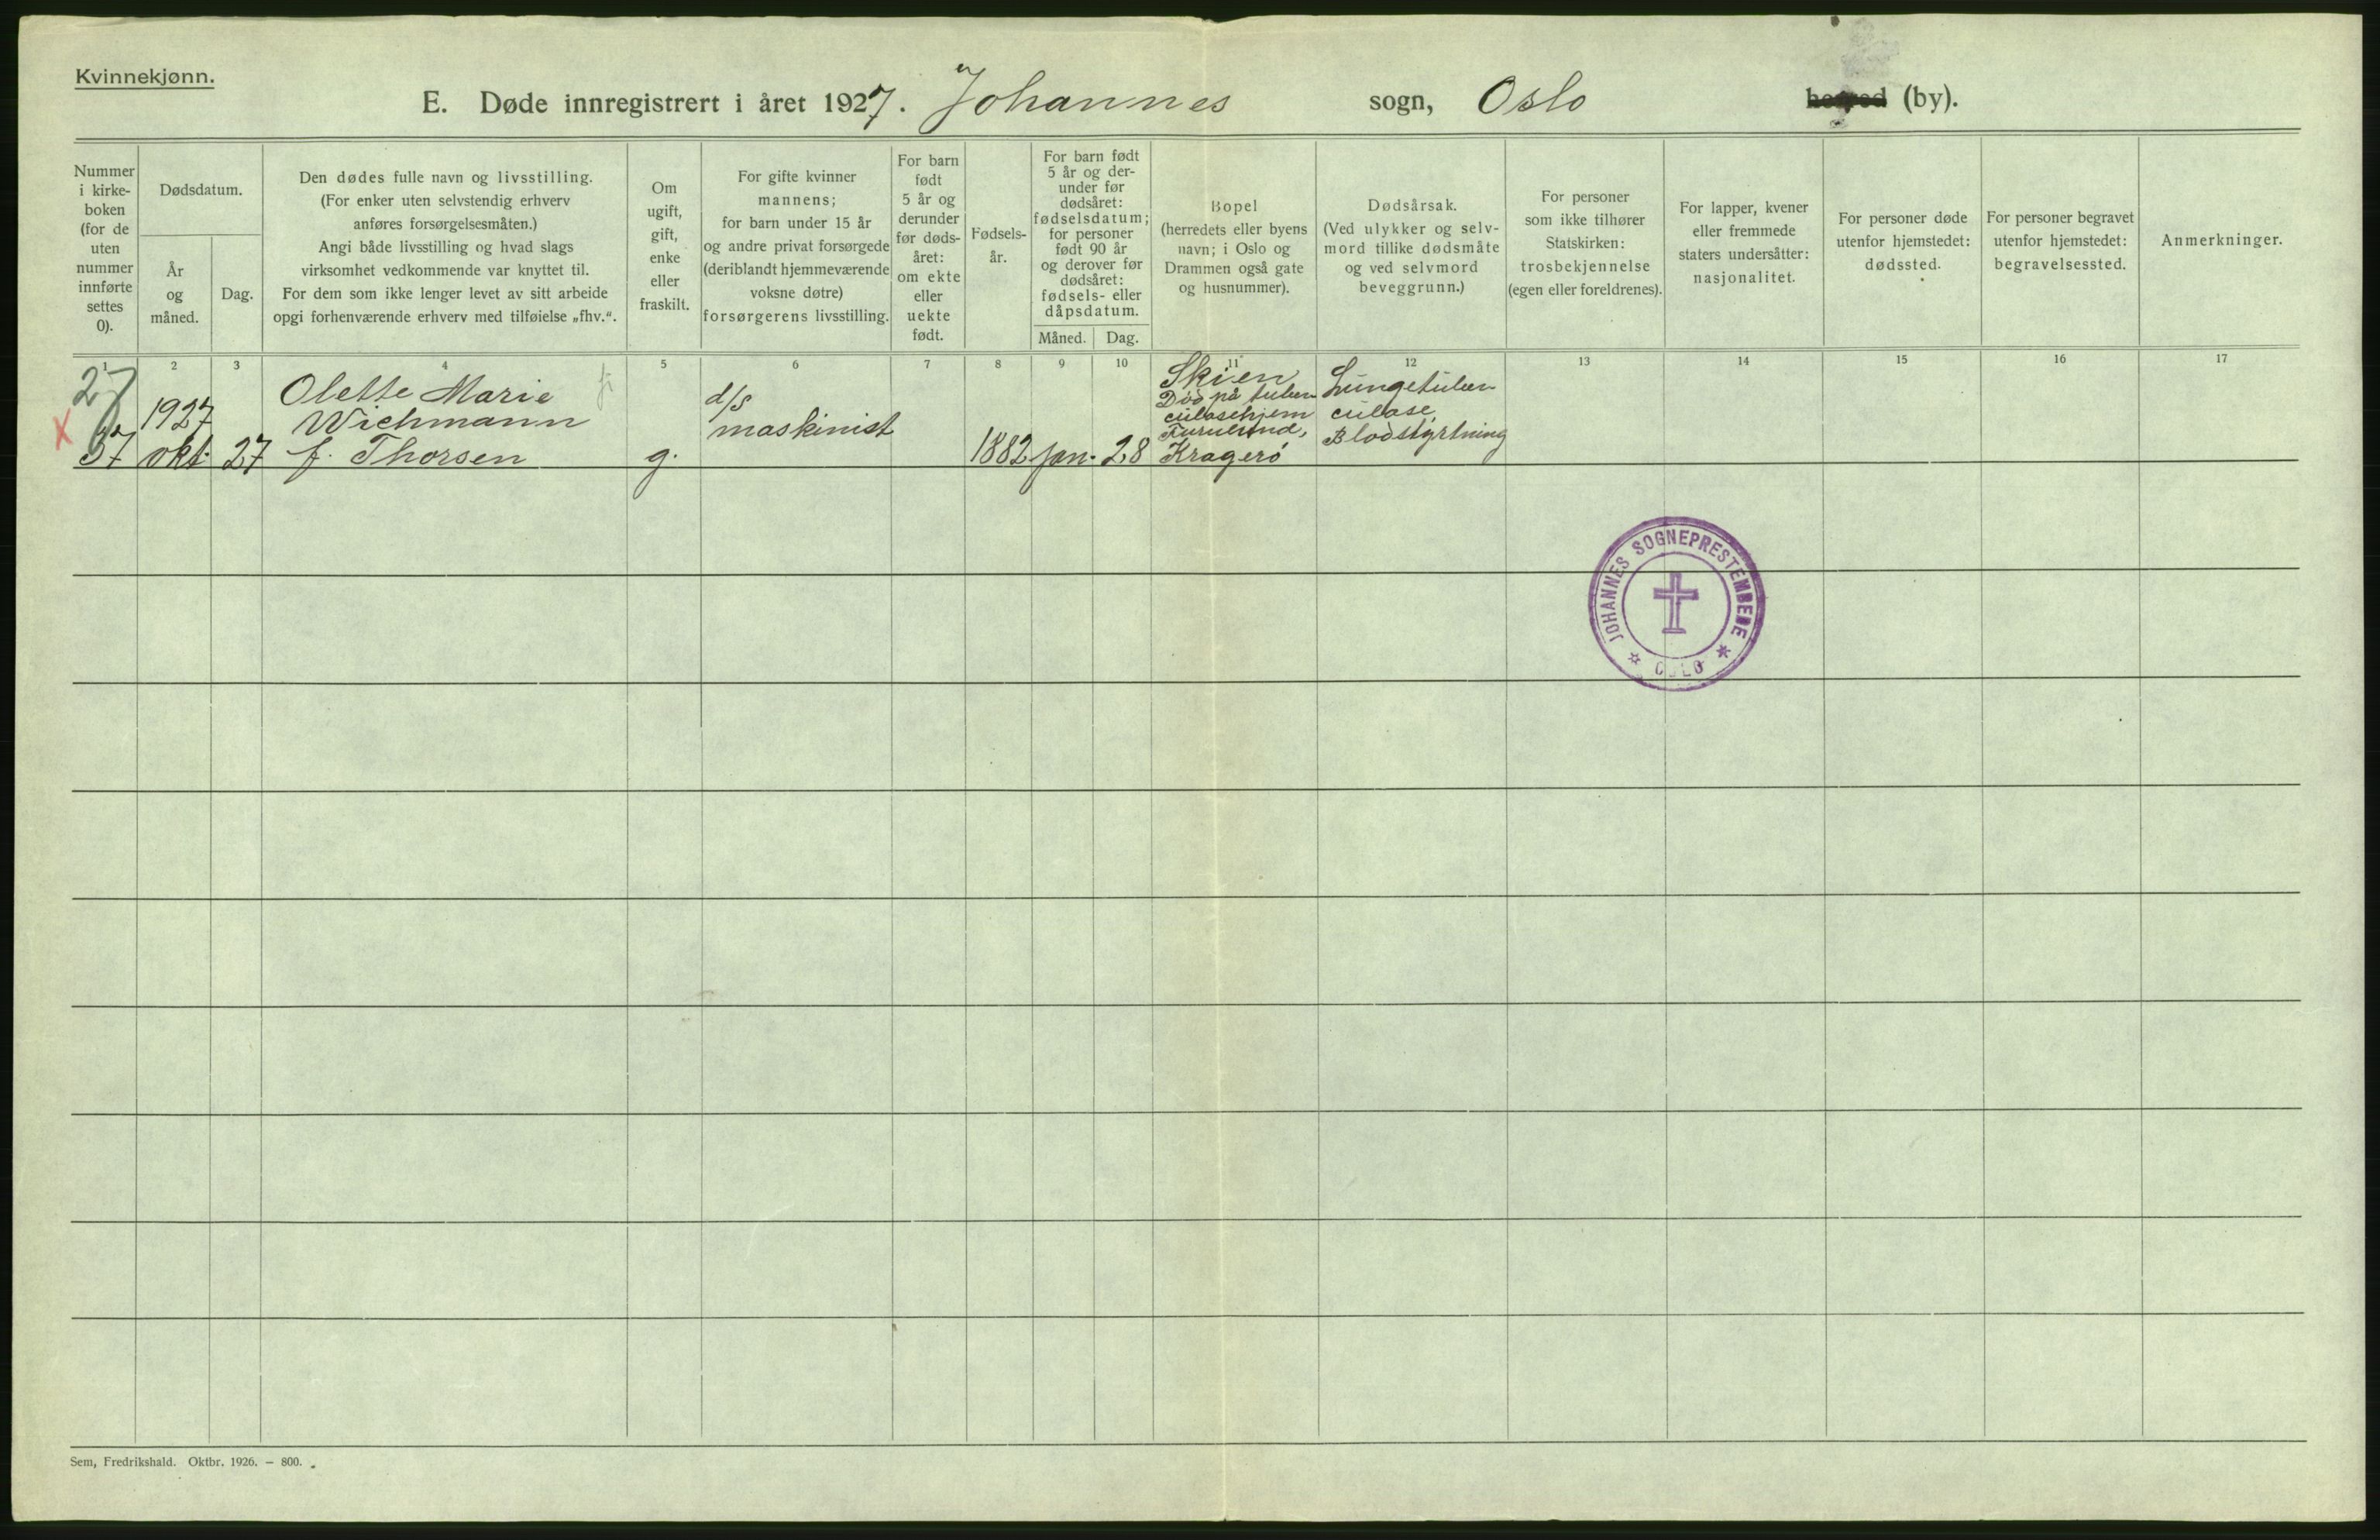 Kvinnekjønn.
E. Døde innregistrert i året 1927. Johannes sogn, Oslo herred (by).
Nummer
i kirke-
boken
(for de
uten
nummer
innførte
settes
0).
Dødsdatum.
År
og
måned.
Dag.
Den dødes fulle navn og livsstilling.
(For enker uten selvstendig erhverv
anføres forsørgelsesmåten.)
Angi både livsstilling og hvad slags
virksomhet vedkommende var knyttet til.
For dem som ikke lenger levet av sitt arbeide
opgi forhenværende erhverv med tilføielse „fhv.“.
Om
ugift,
gift,
enke
eller
fraskilt.
For gifte kvinner
mannens;
for barn under 15 år
og andre privat forsørgede
(deriblandt hjemmeværende
voksne døtre)
forsørgerens livsstilling.
For barn
født
5 år og
derunder
før døds-
året:
om ekte
eller
uekte
født.
Fødsels-
år.
For barn født
5 år og der-
under før
dødsåret:
fødselsdatum;
for personer
født 90 år
og derover før
dødsåret:
fødsels- eller
dåpsdatum.
Måned.
Dag.
Bopel
(herredets eller byens
navn; i Oslo og
Drammen også gate
og husnummer).
Dødsårsak.
(Ved ulykker og selv-
mord tillike dødsmåte
og ved selvmord
beveggrunn.)
For personer
som ikke tilhører
Statskirken:
trosbekjennelse
(egen eller foreldrenes).
For lapper, kvener
eller fremmede
staters undersåtter:
nasjonalitet.
For personer døde
utenfor hjemstedet:
dødssted.
For personer begravet
utenfor hjemstedet:
begravelsessted.
Anmerkninger.
1 2 3 4 5 6 7 8 9 10 11 12 13 14 15 16 17
27
X
37
1927
okt.
27
Olette Marie
Wichmann
f. Thorsen
g.
d/s
maskinist
1882
jan.
28
Skien
Död på tuber
culosehjem
Furulund,
Kragerö
Lungetuber
culose,
Blodstyrtning
JOHANNES SOGNEPRESTEMBEDE
OSLO
Sem, Fredrikshald. Oktbr. 1926. – 800.